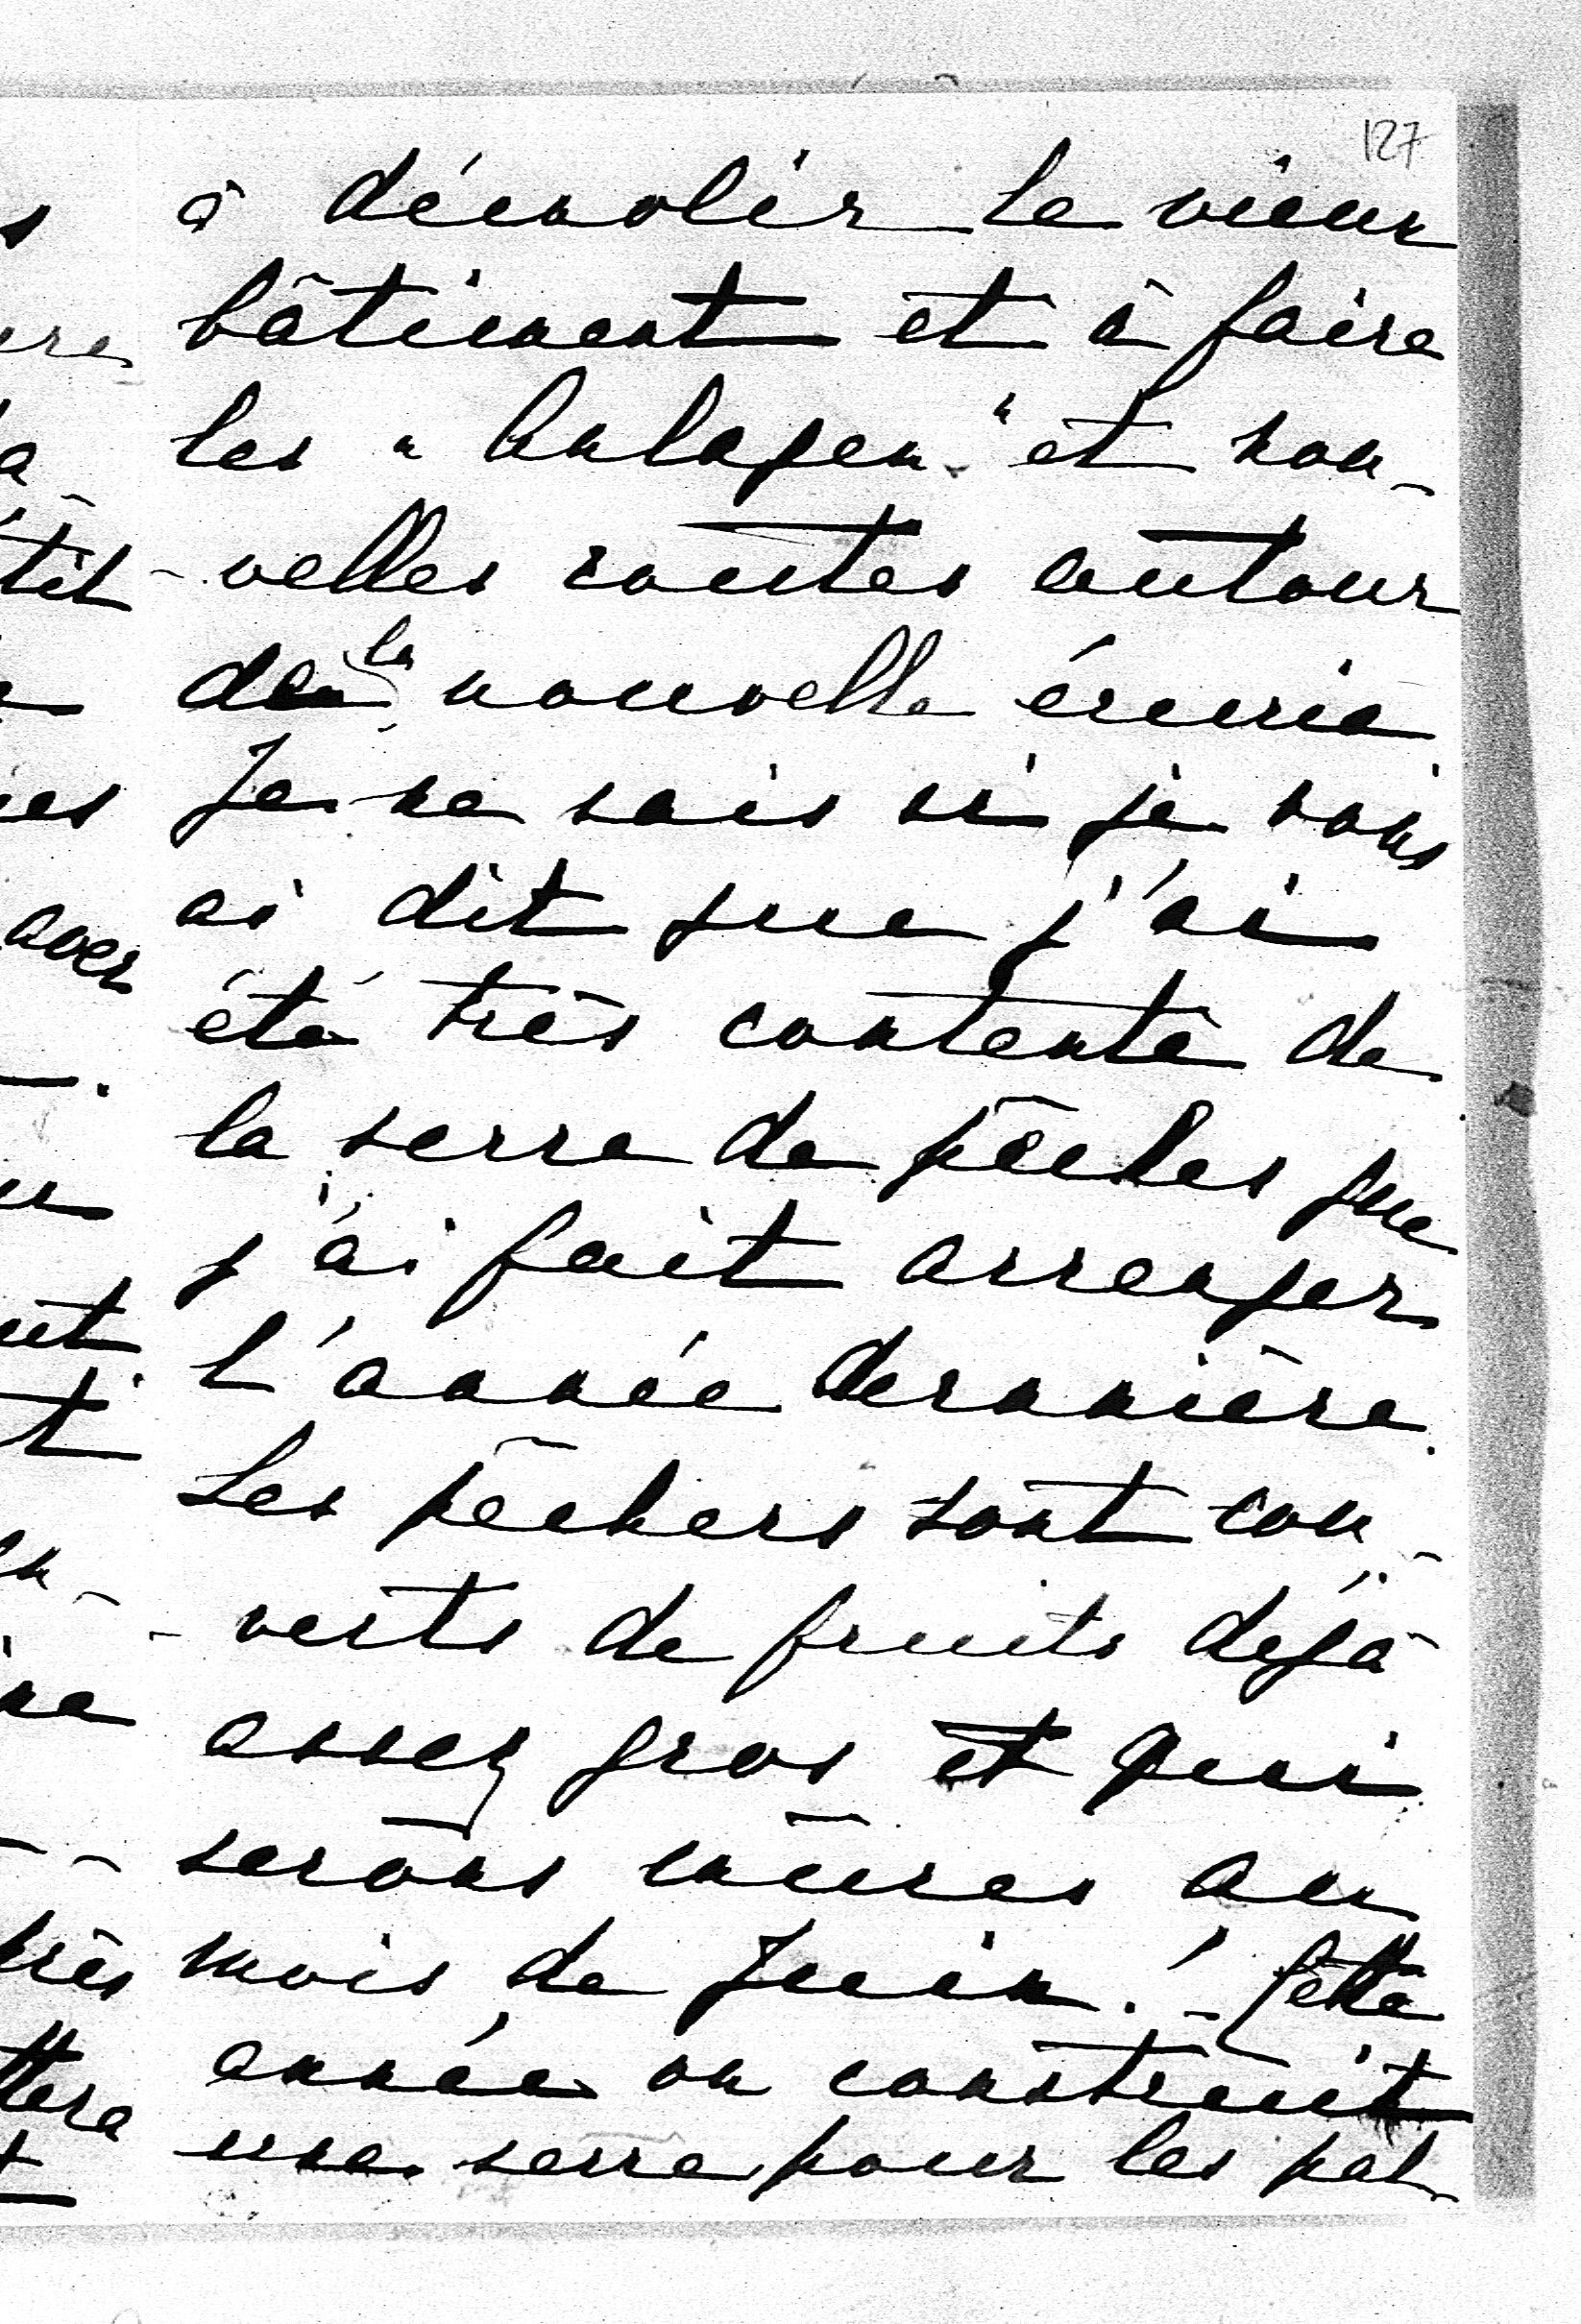 127
à démolir le vieux
bâtiment et à faire
les "Anlagen" et nou-
-velles routes autour
de la nouvelle écurie
Je ne sais si je vous
ai dit que j'ai
été très contente de
la serre de pêches que
j'ai fait arranger
l'année dernnière.
Les pêchers sont cou-
-verts de fruits déjà
assez gros et qui
serons mûres au
mois de Juin! - Cette
année on construit
une serre pour les pal-